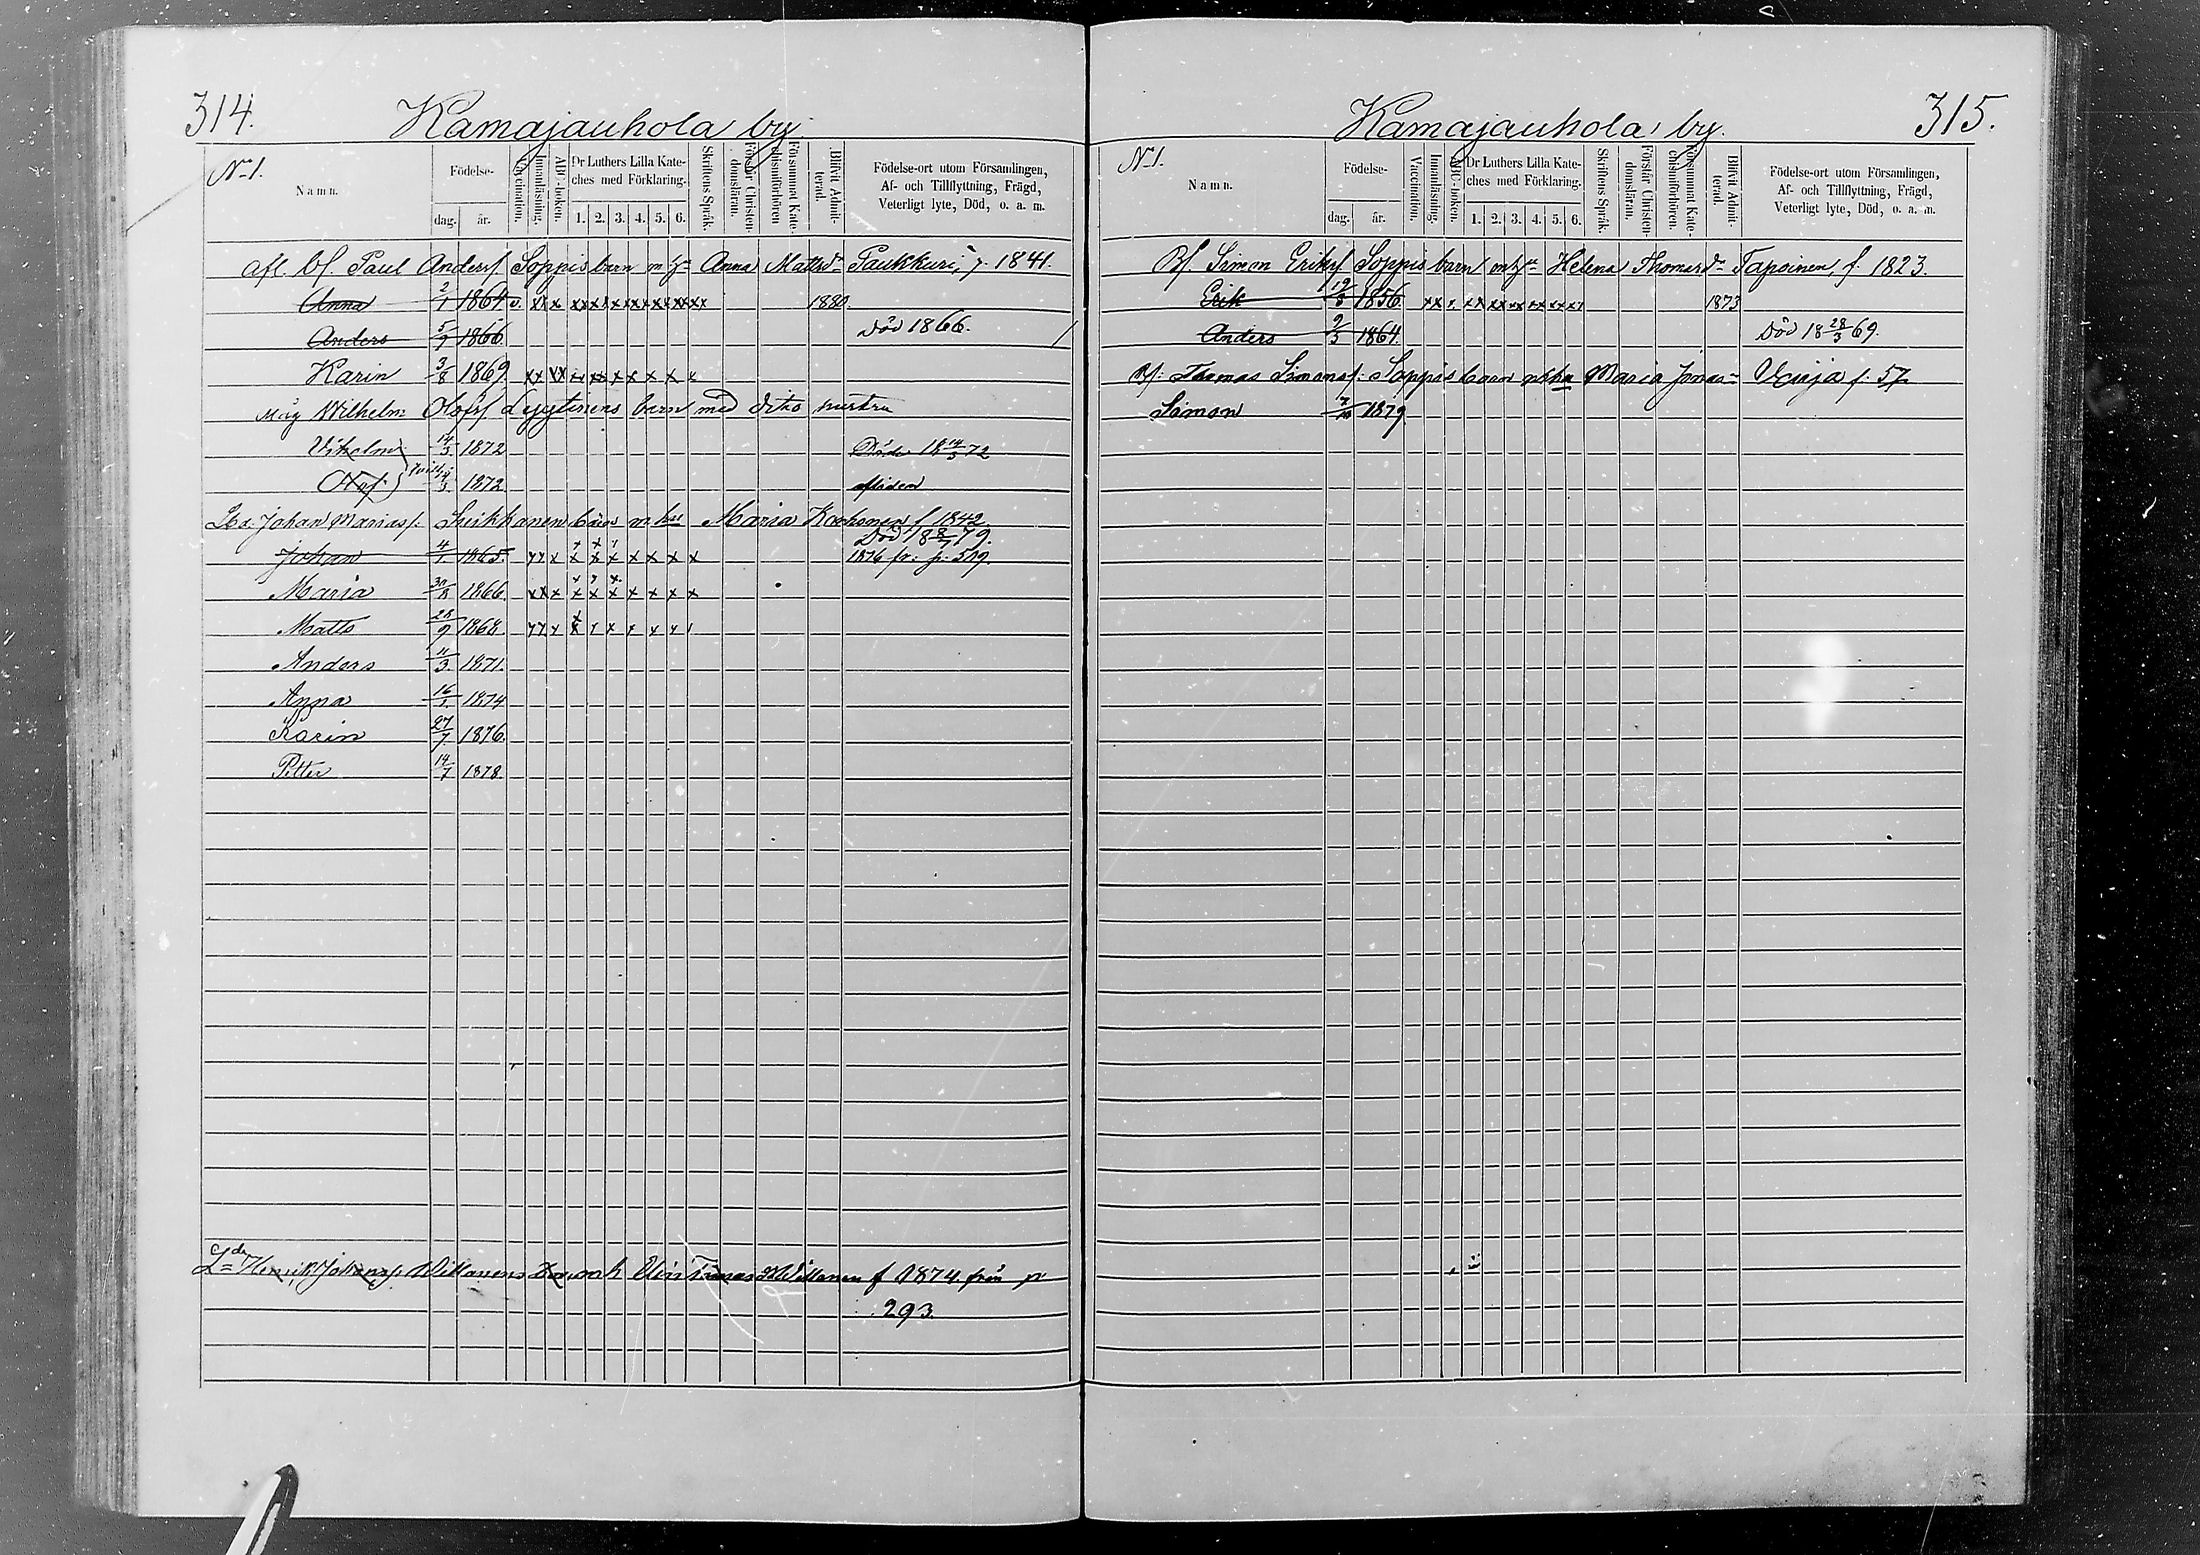 314.
Kamajauhola by
No 1.
Namn.
Födelse-
dag.
år.
Vaccination.
Innanläsning.
ABC-boken.
Dr Luthers Lilla Kate-
ches med Förklaring.
1. 2. 3. 4. 5. 6.
Skriftens Språk.
Förstår Christen-
domsläran.
Försummat Kate-
chismiförhören
Blifvit Admit-
terad.
Födelse-ort utom Församlingen,
Af- och Tillflyttning, Frägd,
Veterligt lyte, Död, o. a. m.
Afl. bf. Paul Andersf. Soppis barn m. Anna Mattsdr Paukkuri, f. 1841.
Anna 2/1 1864 v. xx x xx x x x x x x x x x x x 1880.
Anders 5/9 1866. Död 1866.
Karin 3/8 1869 xx xx xx xx x x x x x
Måg Wilhelm Olofsf Lyytinens barn med dito hustru
Vilhelm 14/3 1872 Döde 18 14/3 72
Olof 14/3 1872 afliden
Johan Mariasf. barn m hu Maria f 1842
Död 18 8/7 79.
Johan 4/1 1865. xx x x x x x x x x 1876 fr. p. 519.
Maria 30/8 1866. xx x x x x x x x x
Matts 28/9 1868. xx x x x x x x x
Anders 11/3. 1871.
Anna 16/1 1874
Karin 27/7. 1876.
Petter 14/7 1878.
Henrik Johansf. Willanens f 1874 från p
293.
315.
Kamajauhola by.
No 1.
Namn.
Födelse-
dag.
år.
Vaccination.
Innanläsning.
ABC-boken.
Dr Luthers Lilla Kate-
ches med Förklaring.
1. 2. 3. 4. 5. 6.
Skriftens Språk.
Förstår Christen-
domsläran.
Försummat Kate-
chismiförhören.
Blifvit Admit-
terad.
Födelse-ort utom Församlingen,
Af- och Tillflyttning, Frägd,
Veterligt lyte, Död, o. a. m.
Bf. Simon Eriksf. Soppis barn m. Helena Thomasdr Tapoinen, f. 1823.
Erik 1856 xx x. xx xx xx xx xx xx 1873
Anders 9/3 1864. Död 18 28/3 69.
Bf. Thomas Simonsf. Soppis barn m hu Maria Jonasdr f. 57
Simon 7/10 1879.